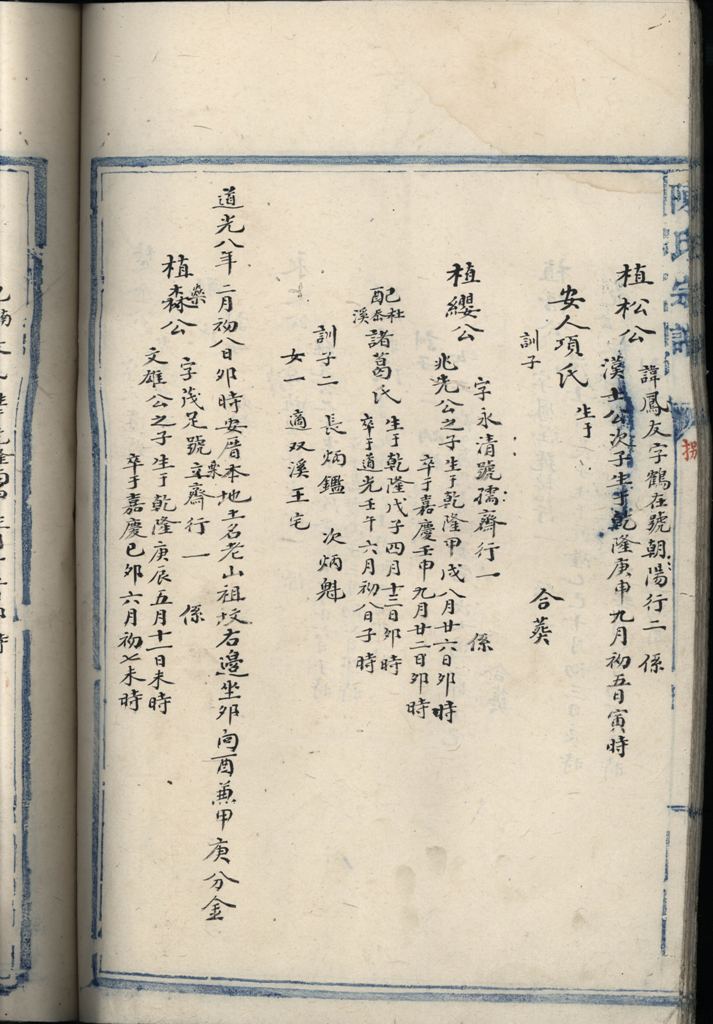 陳氏宗譜
捌
植松公
諱鳳友字鶴在號朝陽行二 係
漢士公次子生于乾隆庚申九月初五日寅時
安人項氏
生于
訓子
合葵
植纓公
字永清號孺齋行一 係
兆先公之子生于乾隆甲戌八月廿六日卯時
卒于嘉慶壬申九月廿二日卯時
配杜溪諸葛氏
生于乾隆戊子四月十二日卯時
卒于道光壬午六月初八日子時
訓子二 長炳鑑 次炳魁
女一 適双溪王宅
道光八年二月初八日卯時安厝本地土名老山祖坟右邊坐卯向酉兼甲庚分金
植森公
字茂足號立齋行一 係
文雄公之子生于乾隆庚辰五月十一日未時
卒于嘉慶己卯六月初七未時